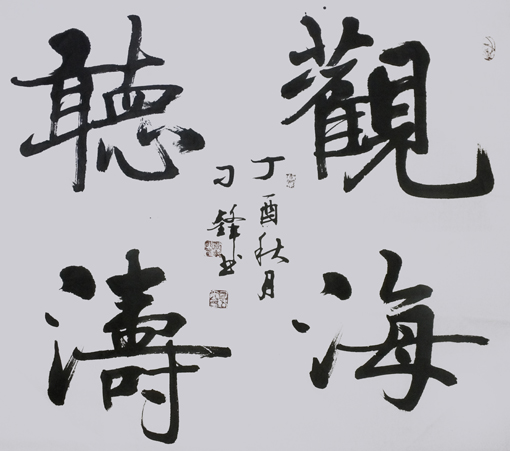 觀海
聽濤
丁酉秋月
刁鋒书